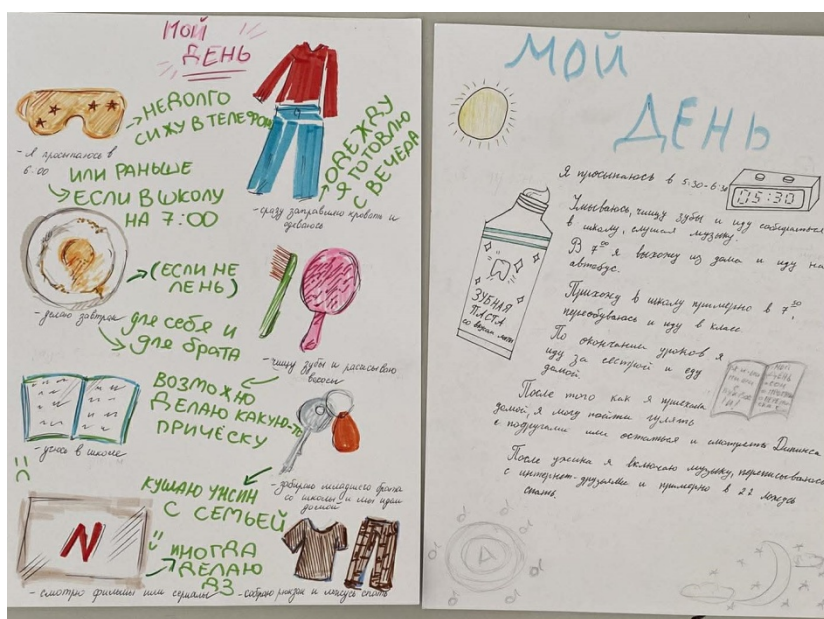 МОЙ
ДЕНЬ
НЕДОЛГО
СИЖУ В ТЕЛЕФОНЕ
- Я просыпаюсь в
6:00
ИЛИ РАНЬШЕ
ЕСЛИ В ШКОЛУ
НА 7:00
ОДЕЖДУ
Я ГОТОВЛЮ
С ВЕЧЕРА
- сразу заправляю кровать и
одеваюсь
(ЕСЛИ НЕ
ЛЕНЬ)
- делаю завтрак
ДЛЯ СЕБЯ И
ДЛЯ БРАТА
- чищу зубы и расчёсываю
волосы
ВОЗМОЖНО
ДЕЛАЮ КАКУЮ-ТО
ПРИЧЕСКУ
- учусь в школе
- забираю младшего брата
со школы и мы идём
домой
КУШАЮ УЖИН
С СЕМЬЕЙ
N
ИНОГДА
ДЕЛАЮ
ДЗ
- смотрю фильмы или сериалы
- собираю рюкзак и ложусь спать
МОЙ
ДЕНЬ
Я просыпаюсь в 5:30-6:30
05:30
Умываюсь, чищу зубы и иду собираться
в школу, слушая музыку.
В 7:00 я выхожу из дома и иду на
автобус.
ЗУБНАЯ
ПАСТА
со вкусом мяты
Прихожу в школу примерно в 7:30,
переобуваюсь и иду в класс.
По окончании уроков я
иду за сестрой и еду
домой.
После того как я приехала
домой, я могу пойти гулять
с подругами или остаться и смотреть Дипинса
После ужина я включаю музыку, переписываюсь
с интернет-друзьями и примерно в 22 ложусь
спать.